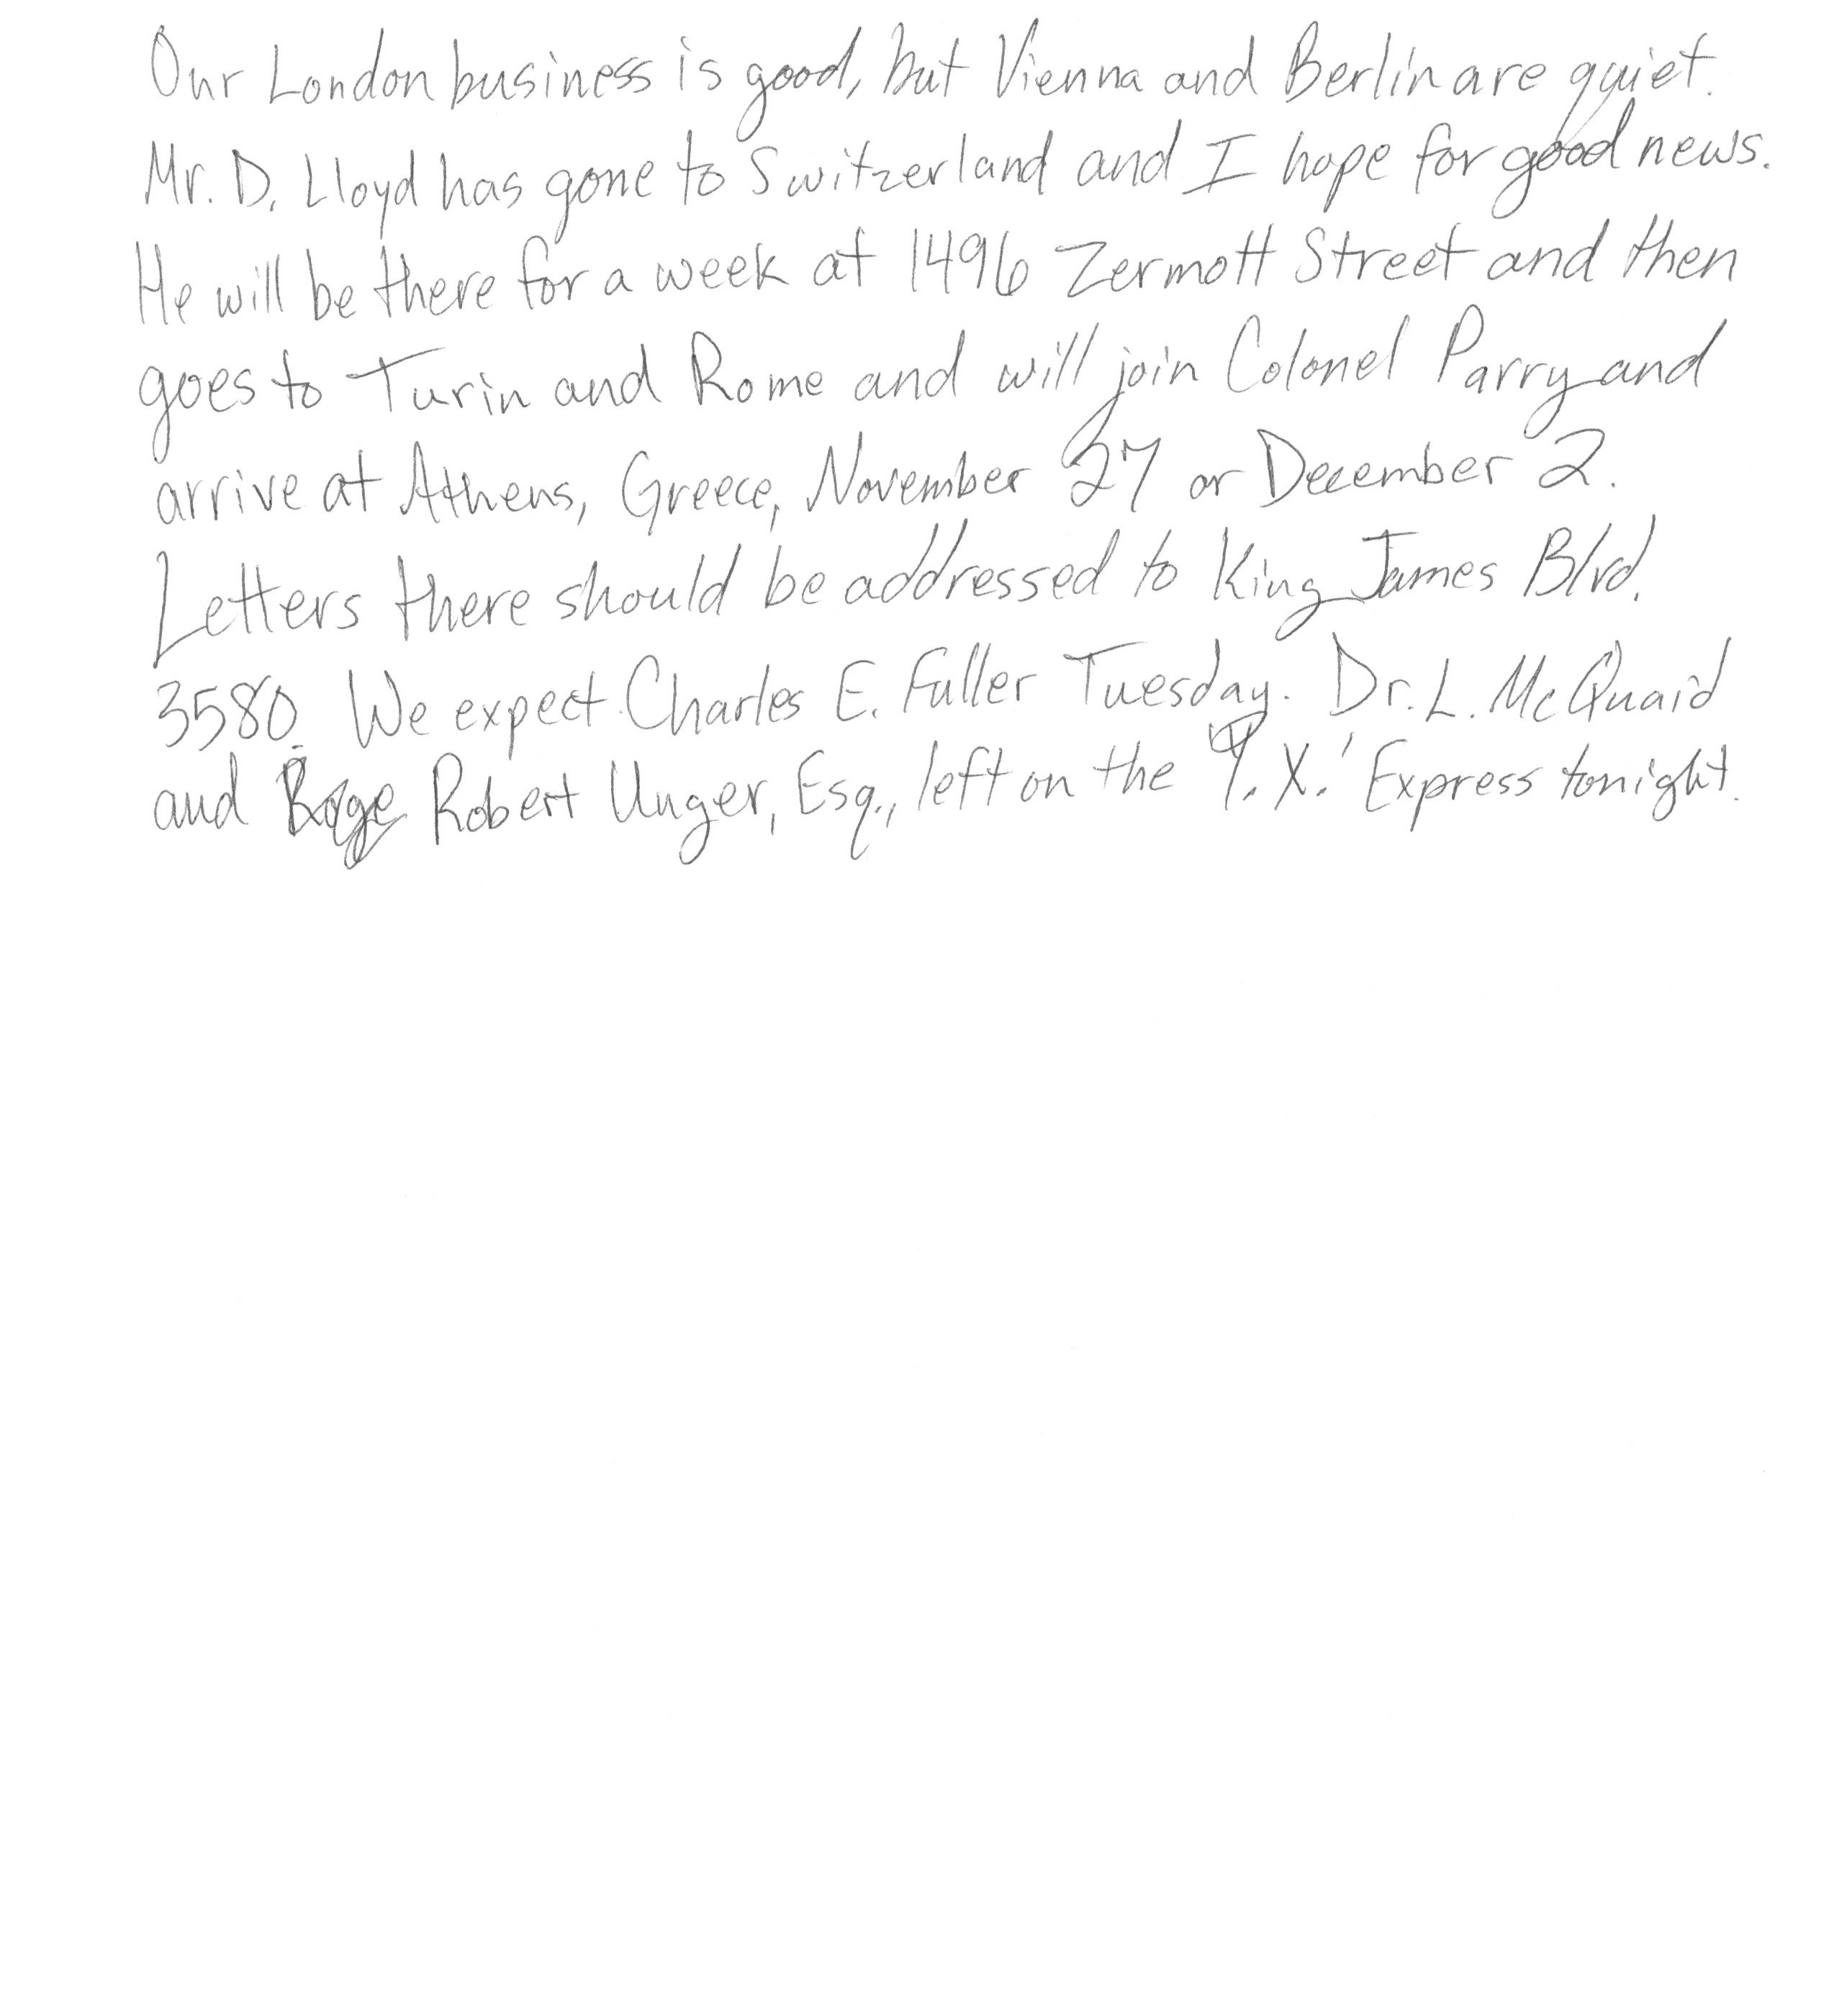 Our London business is good, but Vienna and Berlin are quiet.
Mr. D. Lloyd has gone to Switzerland and I hope for good news.
He will be there for a week at 1496 Zermott Street and then
goes to Turin and Rome and will join Colonel Parry and
arrive at Athens, Greece, November 27 or December 2.
Letters there should be addressed to King James Blvd.
3580. We expect Charles E. Fuller Tuesday. Dr. L. McQuaid
and Robert Unger, Esq., left on the 'Y. X.' Express tonight.